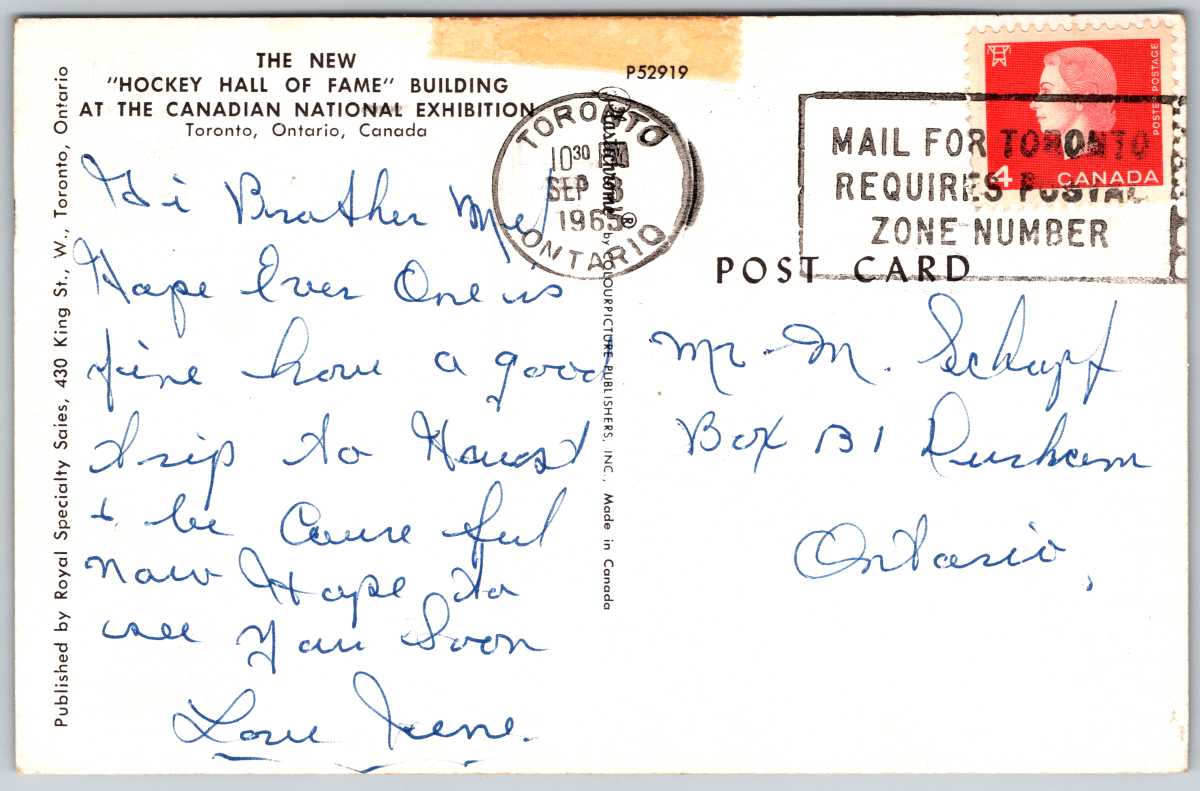 THE NEW
"HOCKEY HALL OF FAME" BUILDING
AT THE CANADIAN NATIONAL EXHIBITION
Toronto, Ontario, Canada
Hi Brother Mel,
Hope Ever One is
fine have a good
trip to
& be Caure ful
now Hope to
see you Soon
Love Irene.
Published by Royal Specialty Sales, 430 King St., W., Toronto, Ontario
P52919
Plastichrome® by COLOURPICTURE PUBLISHERS, INC., Made in Canada
TORONTO
10 30
SEP
1965
ONTARIO
MAIL FOR TORONTO
REQUIRES POSTAL
ZONE NUMBER
POSTES POSTAGE
4 CANADA
POST CARD
Mr. M. Schupf
Box 131 Durham
Ontario,